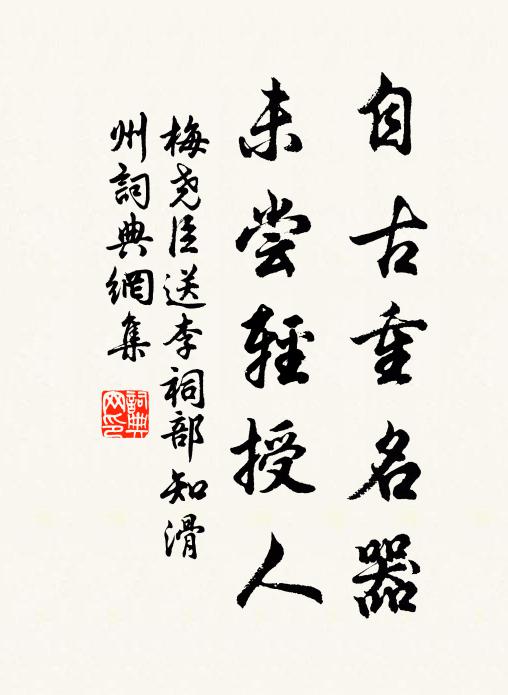 自古重名器
未尝輕授人
梅尧臣送李祠部知滑
州詞典網集
詞典
网印